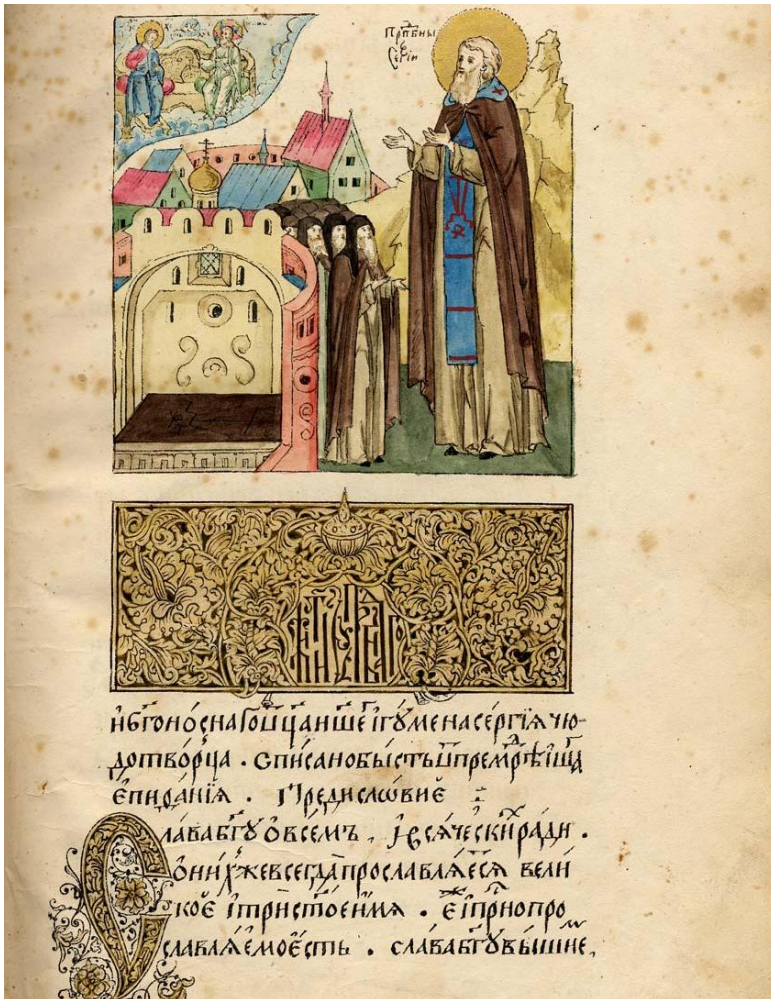 Прпⷣбны
Сергіи
Житїе Прпⷣбнаго
и҆бг҃оно́снагоѿца̀нш҃егоі҆гꙋ́менасе́ргїѧчю-
дотво́рца . спи́санобы́стьѿпремⷣрѣ́йша
є҆пифа́нїѧ . Предисло́вие :
Сла́вабг҃ꙋѡ҆всемъ , і҆всѧ́ческиⷯра́ди .
ѡ҆ни́хⷤжевсегда̀просла́влѧ́етсѧ вели
кое҆ і҆трист҃о́еи҆́мѧ . є҆́жⷤеі҆при́снопро
славлѧ́емое҆́сть . сла́вабг҃ꙋвы́шнеⷨ,